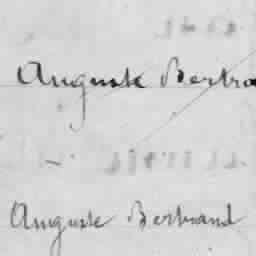 Auguste Bertra
Auguste Bertrand